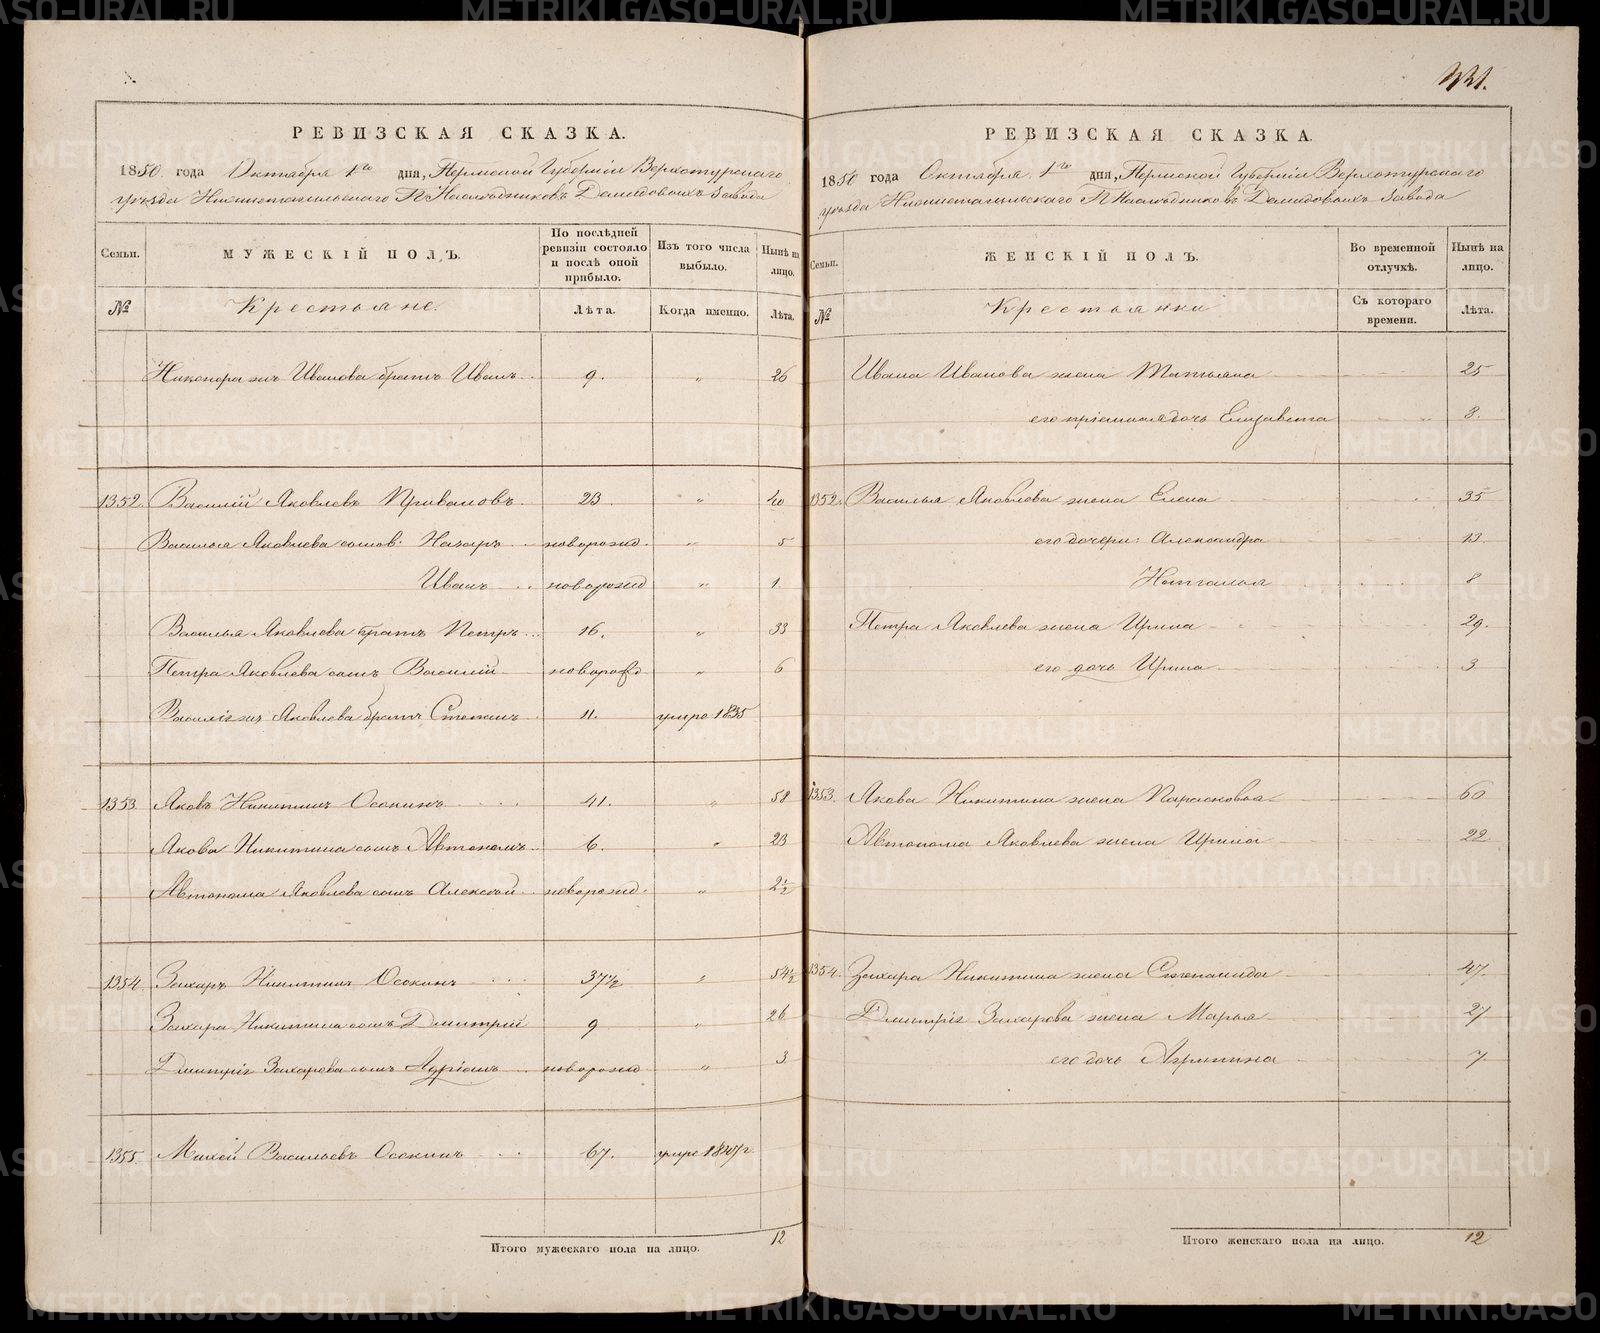 РЕВИЗСКАЯ СКАЗКА.
1850 года Октября 1го дня, Пермской Губерніи Верхотурскаго
уѣзда Нижнетагильскаго Наслѣдниковъ Демидовыхъ Завода
Семьи. МУЖЕСКІЙ ПОЛЪ. По послѣдней ревизіи состояло и послѣ оной прибыло. Изъ того числа выбыло. Нынѣ на лицо.
№ Крестьяне. Лѣта. Когда именно. Лѣта.
Никонора Иванова братъ Иванъ 9. „ 26
1352. Василій Яковлевъ Приваловъ 23 „ 40
Василья Яковлева сынов. Назаръ новорожд. „ 5
Иванъ новорожд „ 1.
Василья Яковлева братъ Петръ 16. „ 33
Петра Яковлева сынъ Василій новорожд „ 6
Яковлева братъ Степанъ 11. умре 1835
1353 Яковъ Никитинъ Осокинъ 41. „ 58
Якова Никитина сынъ Автономъ 6. „ 23
Автонома Яковлева сынъ Алексѣй новорожд. „ 2½
1354. Захаръ Никитинъ Осокинъ 37½ „ 54½
Захара Никитина сынъ Дмитрій 9 „ 26
Дмитрія Захарова сынъ Адріанъ новорожд „ 3
1355. Михей Васильевъ Осокинъ 67. умре
Итого мужескаго пола на лицо. 12
331.
РЕВИЗСКАЯ СКАЗКА.
1850 года Октября 1го дня, Пермской Губерніи Верхотурскаго
уѣзда Нижнетагильскаго Наслѣдниковъ Демидовыхъ Завода
Семьи. ЖЕНСКІЙ ПОЛЪ. Во временной отлучкѣ. Нынѣ на лицо.
№ Крестьянки Съ котораго времени. Лѣта.
Ивана Иванова жена Татьяна 25
его пріемная дочь Елизавета 8.
1352. Василья Яковлева жена Елена 35
его дочери: Александра 13.
Наталья 8
Петра Яковлева жена Ирина 29.
его дочь Ирина 3
1353. Якова Никитина жена Парасковья 60
Автонома Яковлева жена Ирина 22
1354. Захара Никитина жена Степанида 47.
Дмитрія Захарова жена Марья 27
его дочь Агрипина 7
Итого женскаго пола на лицо. 12
METRIKI.GASO-URAL.RU